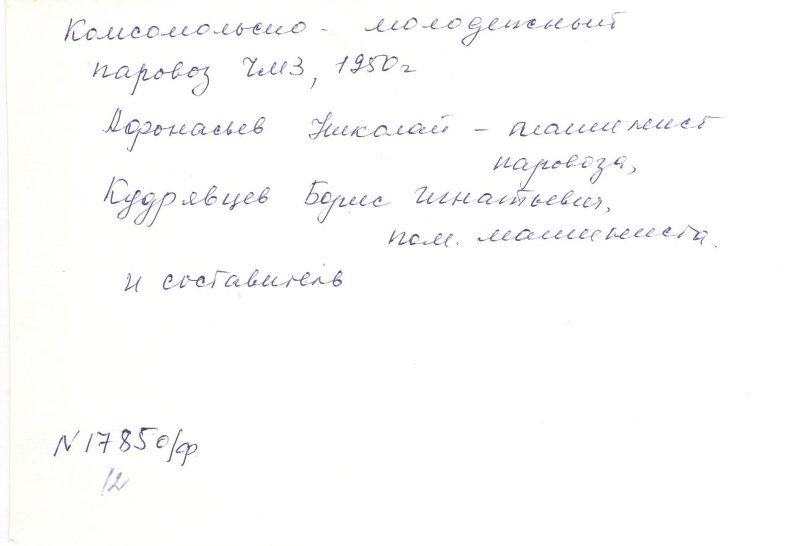 Комсомольско - молодежный
паровоз ЧМЗ, 1950г
Афонасьев Николай - машинист
паровоза,
Кудрявцев Борис Игнатьевич,
пом. машиниста.
и составитель
N 17850/ф
12